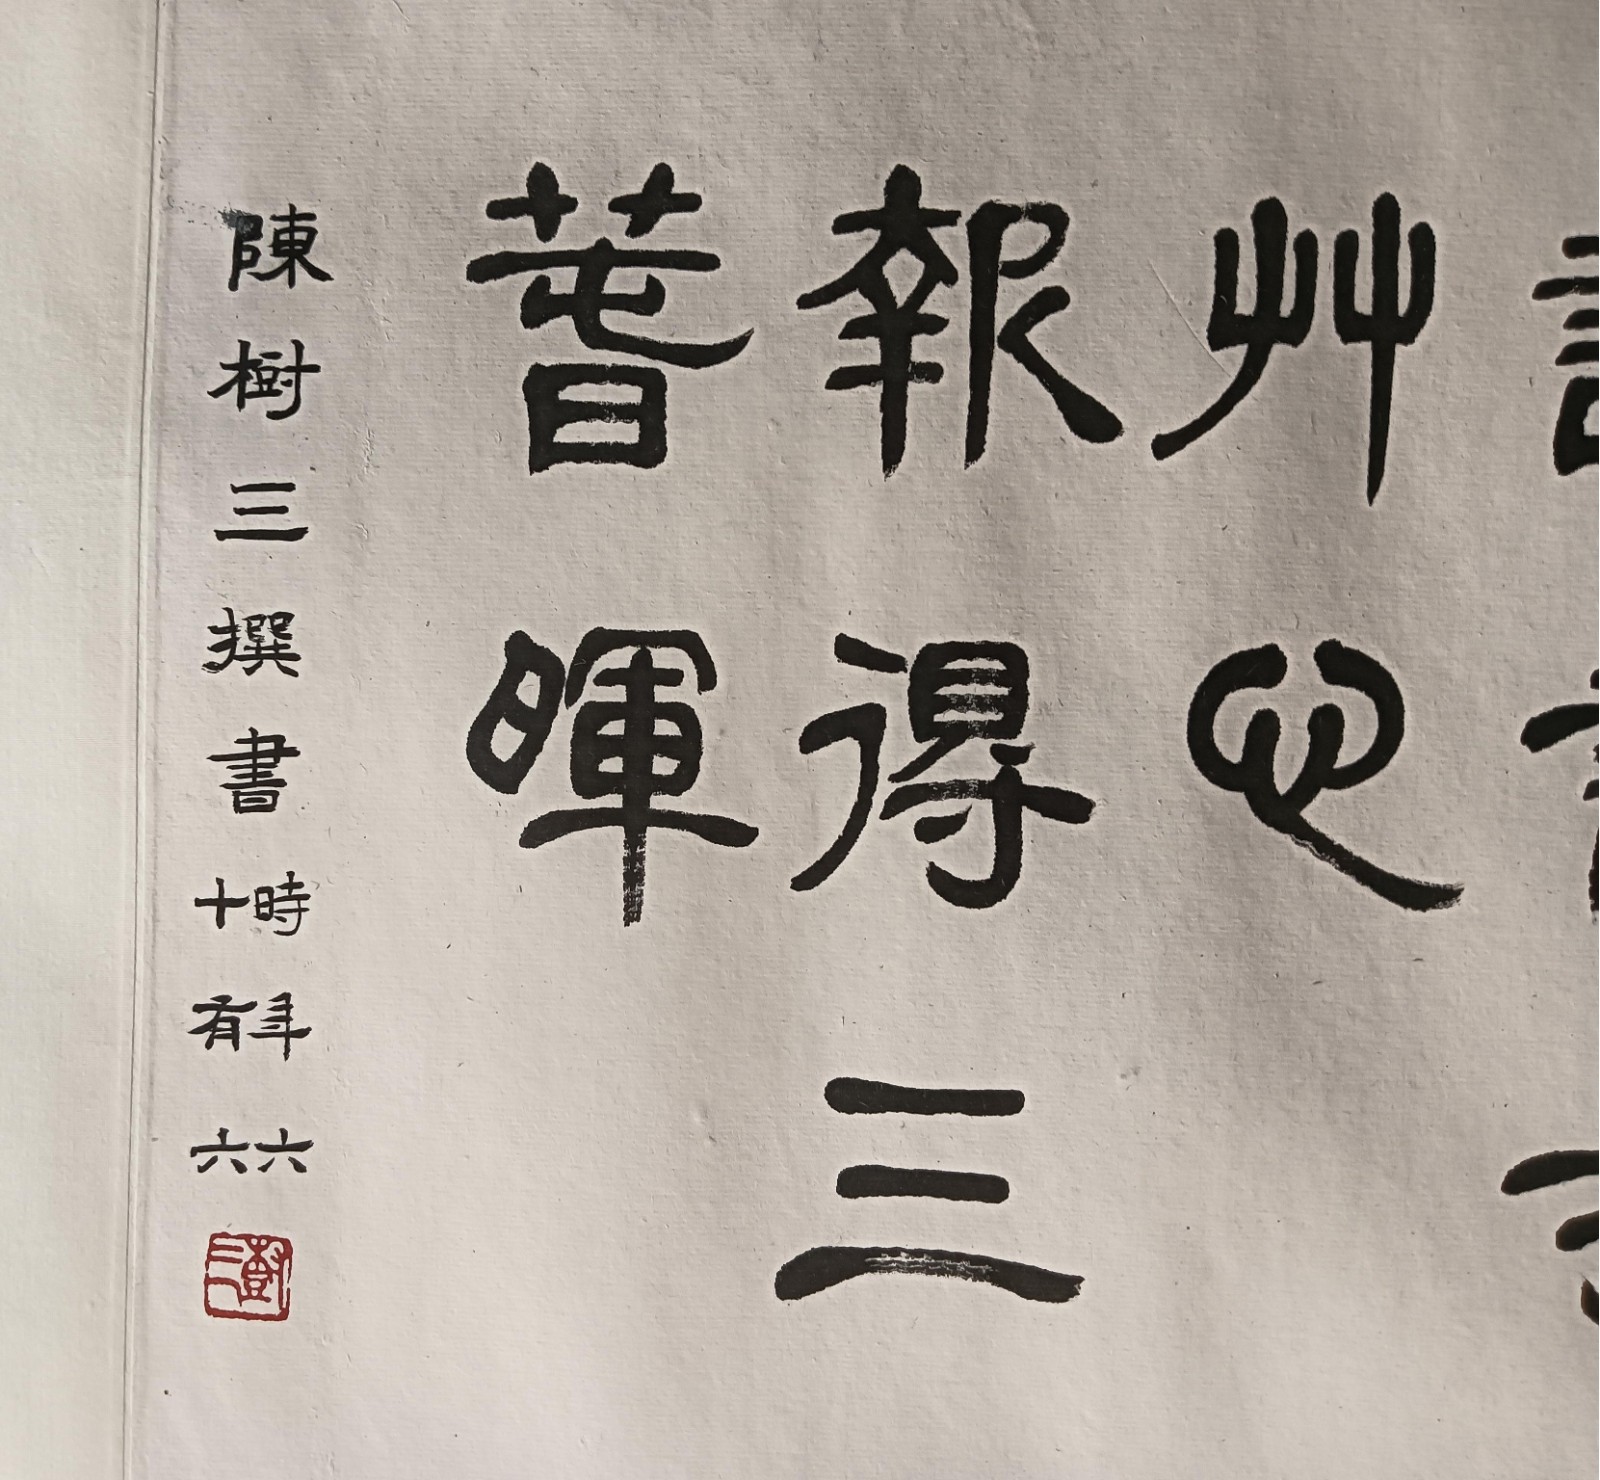 艸心
報得三
萅暉
陳樹三撰書
時年六
十有六
樹三